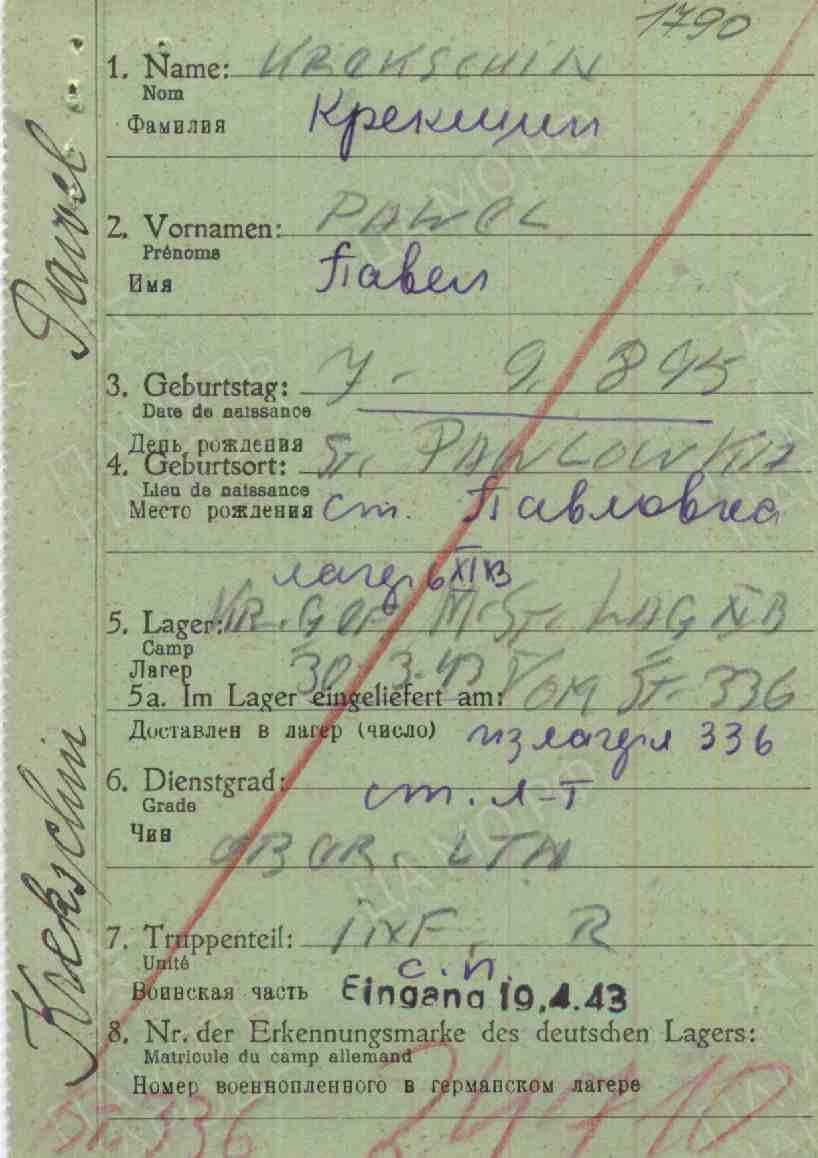 1790
1. Name: KREKSCHIN
Nom
Фамилия Крекшин
2. Vornamen: PAWEL
Prénoms
Имя Павел
3. Geburtstag: 7. 9. 895
Date de naissance
День рождения
4. Geburtsort: St. PAWLOWKA
Lieu de naissance
Место рождения ст. Павловка
лагерь XI B
5. Lager: KR. GEF. M-St. LAG XI B
Camp
Лагер 30. 3. 43 VOM St. 336
5a. Im Lager eingeliefert am:
Доставлен в лагер (число) из лагеря 336
6. Dienstgrad: ст. л-т
Grade
Чин OBER. LTN
7. Truppenteil: INF. R
Unité с.п.
Воинская часть Eingang 19.4.43
8. Nr. der Erkennungsmarke des deutschen Lagers:
Matricule du camp allemand
Номер военнопленного в германском лагере
St. 336
Krekschin Pawel